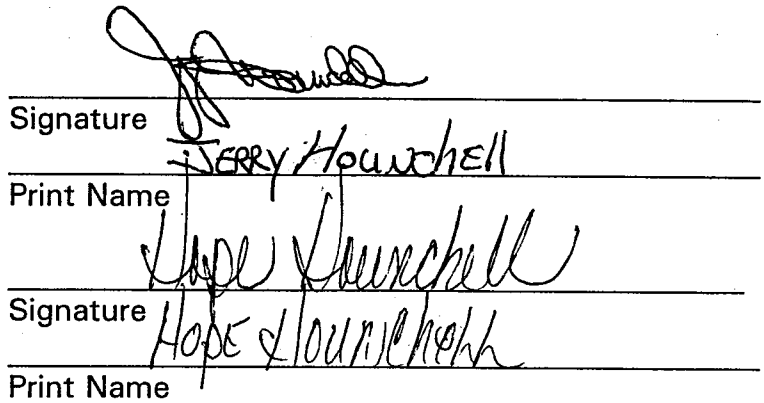 Signature
JERRY HounchEll
Print Name
Hope Hounchell
Signature
HopE Hounchell
Print Name